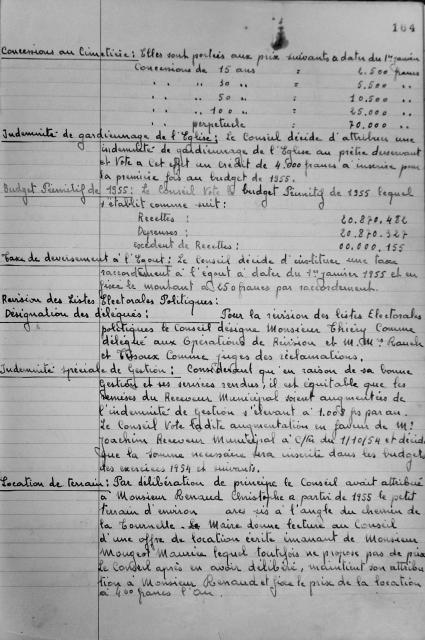 164
Concessions au Cimetière : Elles sont portées aux prix suivants à dater du 1er janvier
Concessions de 15 ans = 2.500 francs
" " 30 " = 5.500 "
" " 50 " = 10.500 "
" " 100 " = 25.000 "
" perpetuelle = 70.000 "
Indemnité de gardiennage de l'Eglise : Le Conseil décide d'attribuer une
indemnité de gardiennage de l'Eglise au prêtre desservant
et Vote à cet effet un crédit de 4.000 francs à inscrire pour
la première fois au budget de 1955.
Budget Primitif de 1955 : Le Conseil Vote le budget Primitif de 1955 lequel
s'établit comme suit :
Recettes : 20.870.482
Depenses : 20.870.327
Excédent de Recettes : 00.000.155
Taxe de deversement à l'Egout : Le Conseil décide d'instituer une taxe
raccordement à l'égout à dater du 1er janvier 1955 et en
fixe le montant à 250 francs par raccordement.
Revision des Listes Electorales Politiques :
Désignation des délégués : Pour la revision des listes Electorales
politiques le Conseil désigne Monsieur Thiéry Comme
délégué aux Operations de Revision et M.Mrs Rauch
et Comme juges des réclamations.
Indemnité spéciale de Gestion : Considérant qu'en raison de sa bonne
Gestion et ses services rendus, il est équitable que les
remises du Receveur Municipal soient augmentées de
l'indemnité de Gestion s'élevant à 1.008 frs par an.
Le Conseil Vote ladite augmentation en faveur de Mr
Joachim Receveur Municipal à C/te du 1/10/54 et décide
que la somme necessaire sera inscrite dans les budgets
des exercices 1954 et suivants.
Location de terrain : Par délibération de principe le Conseil avait attribué
à Monsieur Renaud Christophe a partir de 1955 le petit
terrain d'environ ares sis à l'angle du chemin de
la Tournelle. Le Maire donne lecture au Conseil
d'une offre de location écrite émanant de Monsieur
Mougeot Maurice lequel toutefois ne propose pas de prix
Le Conseil après en avoir délibéré, maintient son attribu
tion à Monsieur Renaud et fixe le prix de la location
à 400 francs l'an.